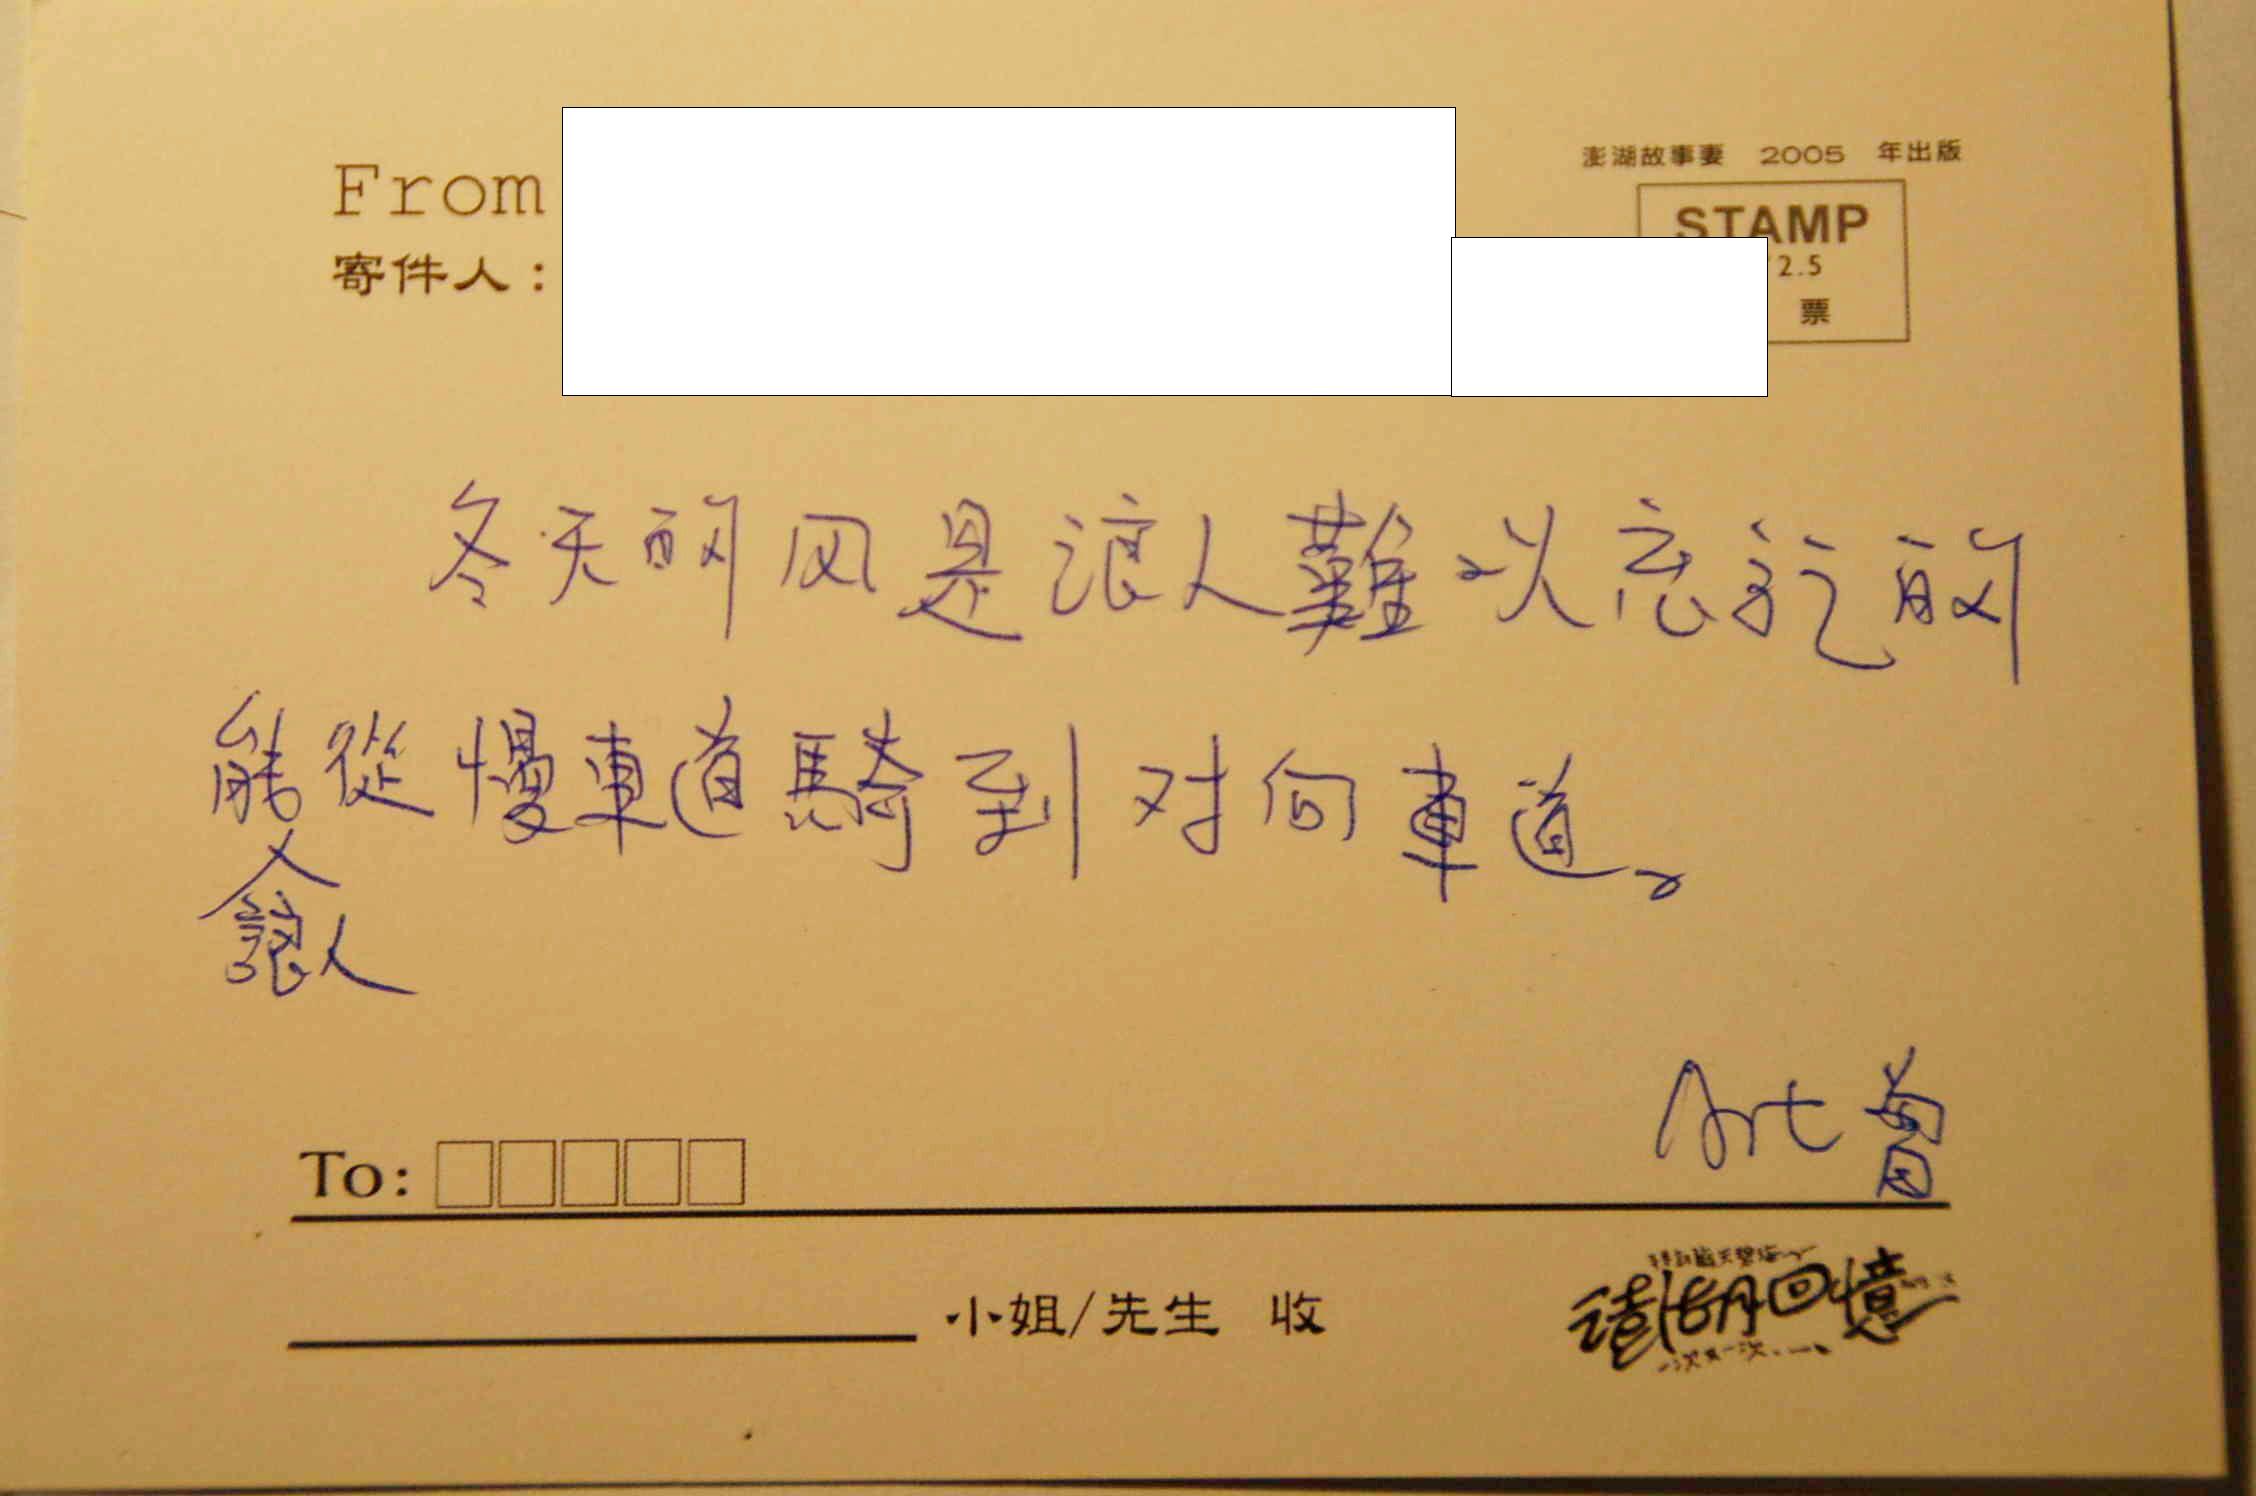 From
寄件人：
澎湖故事妻 2005 年出版
STAMP
2.5
票
冬天的风是浪人難以忘記的
能從慢車道騎到对向車道。
人
Art
To:
小姐/先生 收
澎湖回憶
一次又一次